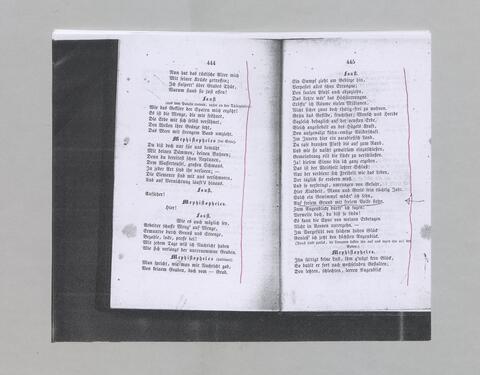 444
Nun hat das tückische Alter mich
Mit seiner Krücke getroffen;
Ich stolpert' über Grabes Thür,
Warum stand sie just offen!
Faust
Wie das Geklirr der Spaten mich ergötzt!
Es ist die Menge, die mir fröhnet,
Die Erde mit sich selbst versöhnet,
Den Wellen ihre Grenze setzt,
Das Meer mit strengem Band umzieht.
Mephistopheles
Du bist doch nur für uns bemüht
Mit deinen Dämmen, deinen Buhnen;
Denn du bereitest schon Neptunen,
Dem Wasserteufel, großen Schmaus.
In jeder Art seid ihr verloren; —
Die Elemente sind mit uns verschworen,
Und auf Vernichtung läuft's hinaus.
Faust.
Aufseher!
Mephistopheles.
Hier!
Faust.
Wie es auch möglich sey,
Arbeiter schaffe Meng' auf Menge,
Ermuntre durch Genuß und Strenge,
Bezahle, locke, presse bei!
Mit jedem Tage will ich Nachricht haben
Wie sich verlängt der unternommene Graben.
Mephistopheles
Man spricht, wie man mir Nachricht gab,
Von keinem Graben, doch vom — Grab.
445
Faust.
Ein Sumpf zieht am Gebirge hin,
Verpestet alles schon Errungne;
Den faulen Pfuhl auch abzuziehn,
Das letzte wär' das Höchsterrungne.
Eröffn' ich Räume vielen Millionen,
Nicht sicher zwar doch thätig-frei zu wohnen.
Grün das Gefilde, fruchtbar; Mensch und Heerde
Sogleich behaglich auf der neusten Erde,
Gleich angesiedelt an des Hügels Kraft,
Den aufgewälzt kühn-emsige Völkerschaft.
Im Innern hier ein paradiesisch Land,
Da rase draußen Fluth bis auf zum Rand,
Und wie sie nascht gewaltsam einzuschießen,
Gemeindrang eilt die Lücke zu verschließen.
Ja! diesem Sinne bin ich ganz ergeben,
Das ist der Weisheit letzter Schluß:
Nur der verdient sich Freiheit wie das Leben,
Der täglich sie erobern muß.
Und so verbringt, umrungen von Gefahr,
Hier Kindheit, Mann und Greis sein tüchtig Jahr.
Solch ein Gewimmel möcht' ich sehn,
Auf freiem Grund mit freiem Volke stehn.
Zum Augenblicke dürft' ich sagen:
Verweile doch, du bist so schön!
Es kann die Spur von meinen Erdetagen
Nicht in Aeonen untergehn. —
Im Vorgefühl von solchem hohen Glück
Genieß' ich jetzt den höchsten Augenblick.
Mephistopheles.
Ihn sättigt keine Lust, ihm g'nügt kein Glück,
So buhlt er fort nach wechselnden Gestalten;
Den letzten, schlechten, leeren Augenblick